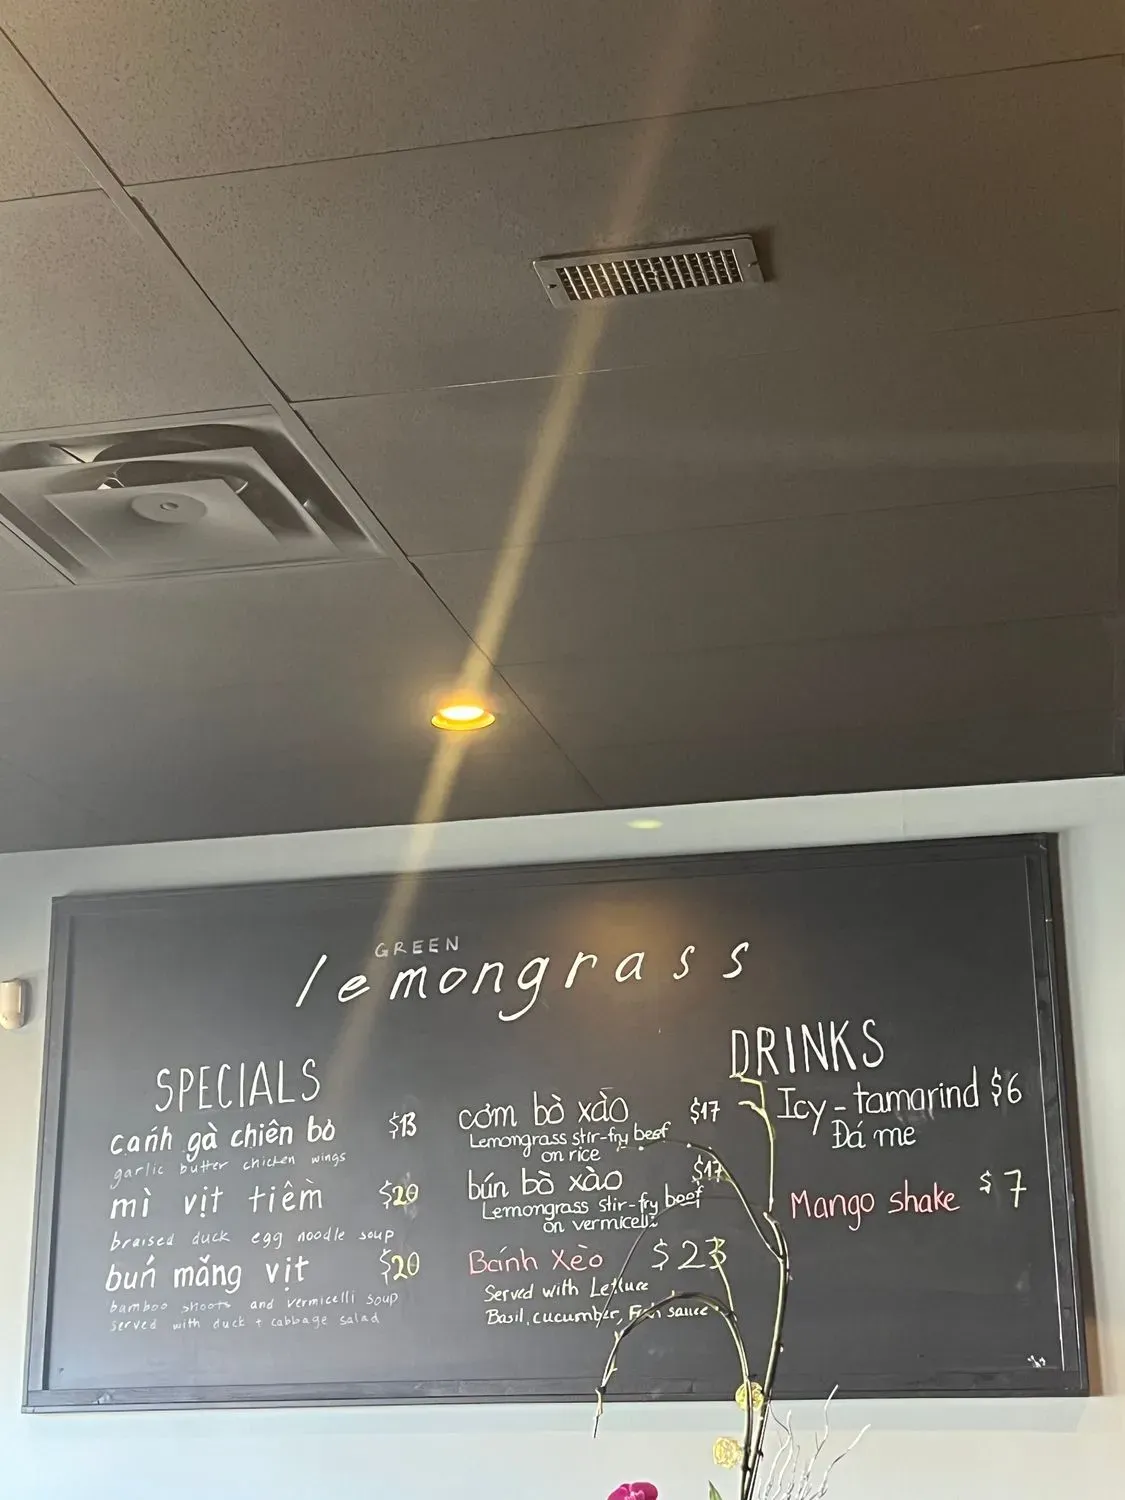 GREEN
lemongrass
SPECIALS
cánh gà chiên bò $13
garlic butter chicken wings
mì vịt tiềm $20
braised duck egg noodle soup
bún măng vịt $20
bamboo shoots and vermicelli soup
served with duck + cabbage salad
cơm bò xào $17
Lemongrass stir-fry beef
on rice
bún bò xào $17
Lemongrass stir-fry beef
on vermicelli
Bánh Xèo $23
Served with Lettuce
Basil, cucumber, Fish sauce
DRINKS
Icy-tamarind $6
Đá me
Mango shake $7